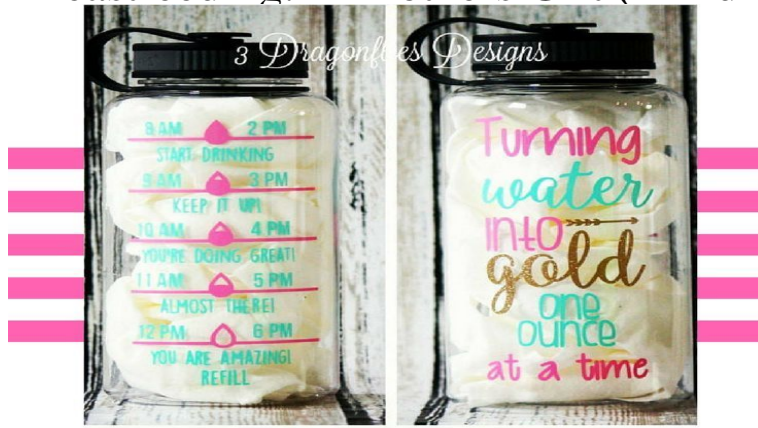 3 Dragonflies Designs
8 AM 2 PM
START DRINKING
9 AM 3 PM
KEEP IT UP!
10 AM 4 PM
YOU'RE DOING GREAT!
11 AM 5 PM
ALMOST THERE!
12 PM 6 PM
YOU ARE AMAZING!
REFILL
Turning
water
into
gold
one
ounce
at a time